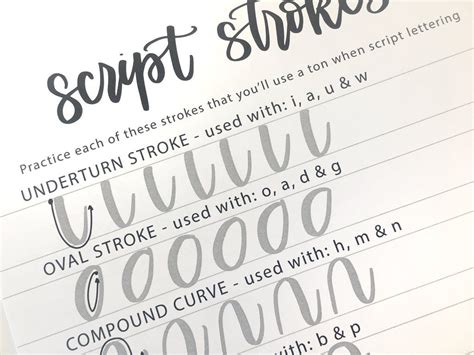 script strokes
Practice each of these strokes that you'll use a ton when script lettering
UNDERTURN STROKE - used with: i, a, u & w
OVAL STROKE - used with: o, a, d & g
COMPOUND CURVE - used with: h, m & n
used with: b & p